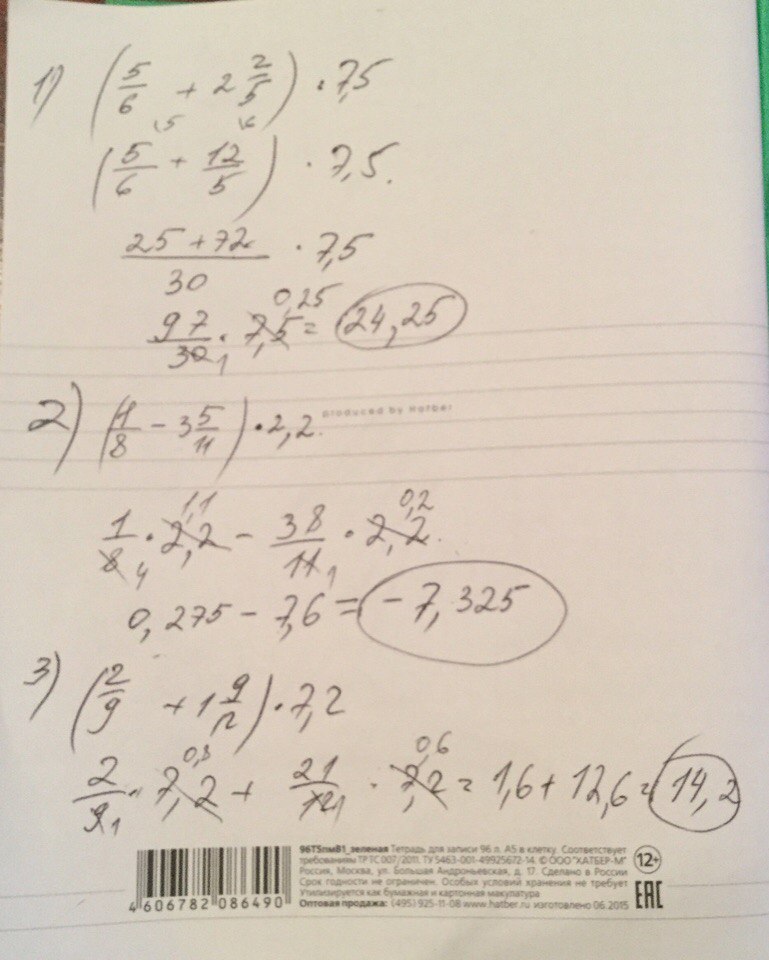 1) (5/6 + 2 2/5) · 7,5
15 16
(5/6 + 12/5) · 7,5.
25 + 72 / 30 · 7,5
0,25
97/30 1 · 7,5 = 24,25
2) (1/8 - 3 5/11) · 2,2.
produced by Hatber
1,1 0,2
1/8 4 · 2,2 - 38/11 1 · 2,2.
0,275 - 7,6 = -7,325
3) (2/9 + 1 9/12) · 7,2
0,8 0,6
2/9 1 · 7,2 + 21/12 1 · 7,2 = 1,6 + 12,6 = 14,2
96Т5лмВ1_зеленая Тетрадь для записи 96 л. А5 в клетку. Соответствует
требованиям ТР ТС 007/2011. ТУ 5463-001-49925672-14. © ООО "ХАТБЕР-М"
Россия, Москва, ул. Большая Андроньевская, д. 17. Сделано в России
Срок годности не ограничен. Особых условий хранения не требует
Утилизируется как бумажная и картонная макулатура
Оптовая продажа: (495) 925-11-08 www.hatber.ru изготовлено 06.2015
12+
ЕАС
4 606782 086490